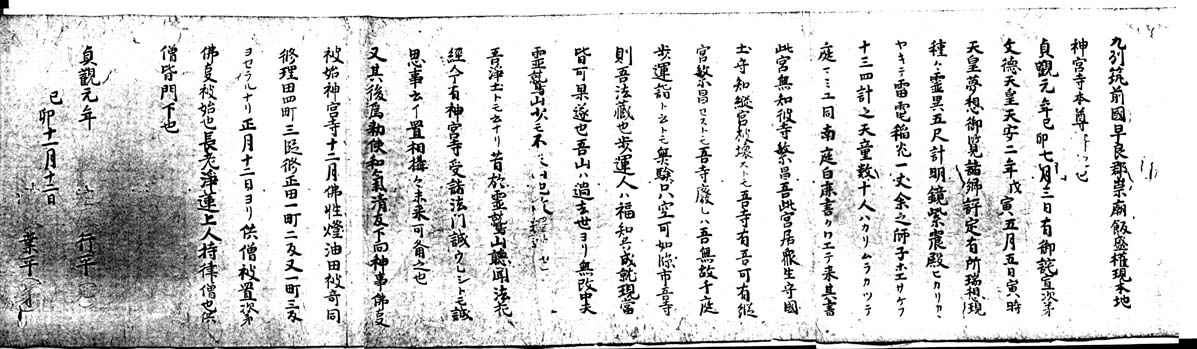 九列筑前國早良郡崇廟飯盛権現本地
神宮寺本尊
貞観元年己卯七月三日有御託宣次第
文徳天皇天安二年戊寅五月五日寅時
天皇夢想御覧諸卿評定有所瑞想現
種々霊異五尺計明鏡紫宸殿ヒカリカ
ヤキテ雷電稲光一丈余之師子ホエサケフ
十三四計之天童数十人ハカリムラカツテ
庭マミユ同南庭白車書クワエテ来其書
此宮無知彼寺繁昌吾此宮居衆生守國
土守知縦宮社壊ストモ吾寺有吾可有縦
宮繁昌セストモ吾寺廢レハ吾無故千度
歩運詣トモ無験只空可如除市吾寺
則吾法蔵也歩運人ハ福和与成就現當
皆可果遂也吾山ハ過去世ヨリ無改申夫
霊鷲山少モ不
吾浄土トモ云ナリ昔於霊鷲山聴聞法花
經今有神宮寺受諸法門誠
思事云イ置相構々未来可有之也
又其後為勅使和氣清友下向神事佛支
被始神宮寺十二月佛性燈油田被寄同
修理田四町三段修正田一町二反又一町三反
ヨセラルナリ正月十二日ヨリ供僧被置次第
佛食被始也長老浄蓮上人持律僧也供
僧皆門下也
貞観元年 行平
己卯十一月十二日
業平